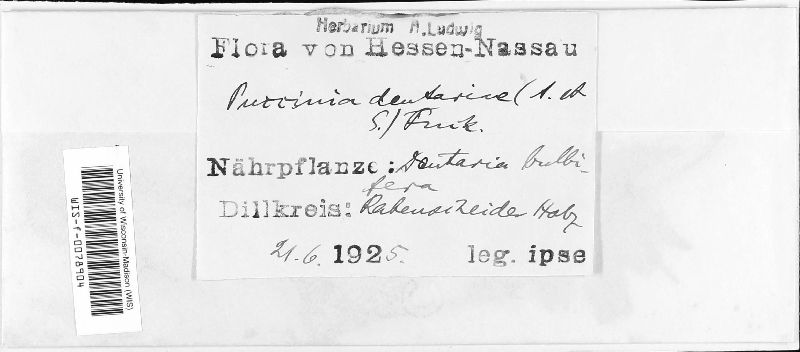 Herbarium A. Ludwig
Flora von Hessen-Nassau
Puccinia dentariae (A. et
S.) Fuck.
Nährpflanze: Dentaria bulbi-
fera
Dillkreis: Rabenscheider Holz
21.6. 1925. leg. ipse
University of Wisconsin-Madison (WIS)
WIS-f-0078904